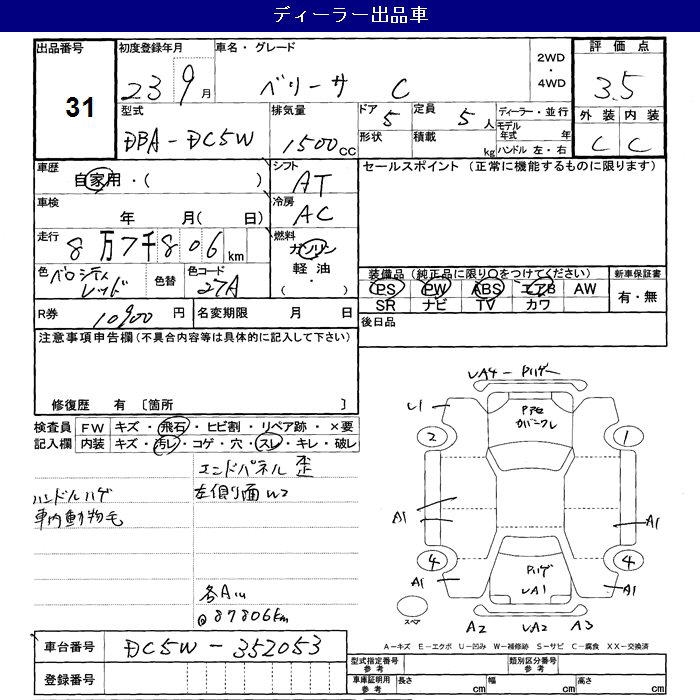 ディーラー出品車
出品番号
31
初度登録年月
23 9月
車名・グレード
ベリーサ C
2WD
・
4WD
評価点
3.5
外装 内装
C C
型式
DBA-DC5W
排気量
1500cc
ドア 5
形状
定員 5人
積載 kg
ディーラー・並行
モデル年式 年
ハンドル 左・右
車歴
自家用・( )
シフト
AT
車検
年 月( 日)
冷房
AC
走行
8万7千806km
燃料
ガソリン
軽油
( ・ )
色 ベロシティレッド
色替
色コード
27A
セールスポイント (正常に機能するものに限ります)
装備品 (純正品に限り○をつけてください)
PS PW ABS エアB AW
SR ナビ TV カワ
新車保証書
有・無
R券 10900円
名変期限 月 日
後日品
注意事項申告欄(不具合内容等は具体的に記入して下さい)
修復歴 有 〔箇所 〕
検査員記入欄
FW キズ・飛石・ヒビ割・リペア跡・×要
内装 キズ・汚レ・コゲ・穴・スレ・キレ・破レ
エンドパネル歪
左側面W2
ハンドルハゲ
車内動物毛
各A1U
@87806km
UA4-Pハゲ
U1
Pアセ
カバークレ
2
1
A1
A1
4
4
A1
A1
Pハゲ
UA1
スペア
A2 UA2 A3
A-キズ E-エクボ U-凹み W-補修跡 S-サビ C-腐食 XX-交換済
車台番号
DC5W-352053
登録番号
型式指定番号
参考
類別区分番号
参考
車庫証明用
参考
長さ cm
幅 cm
高さ cm